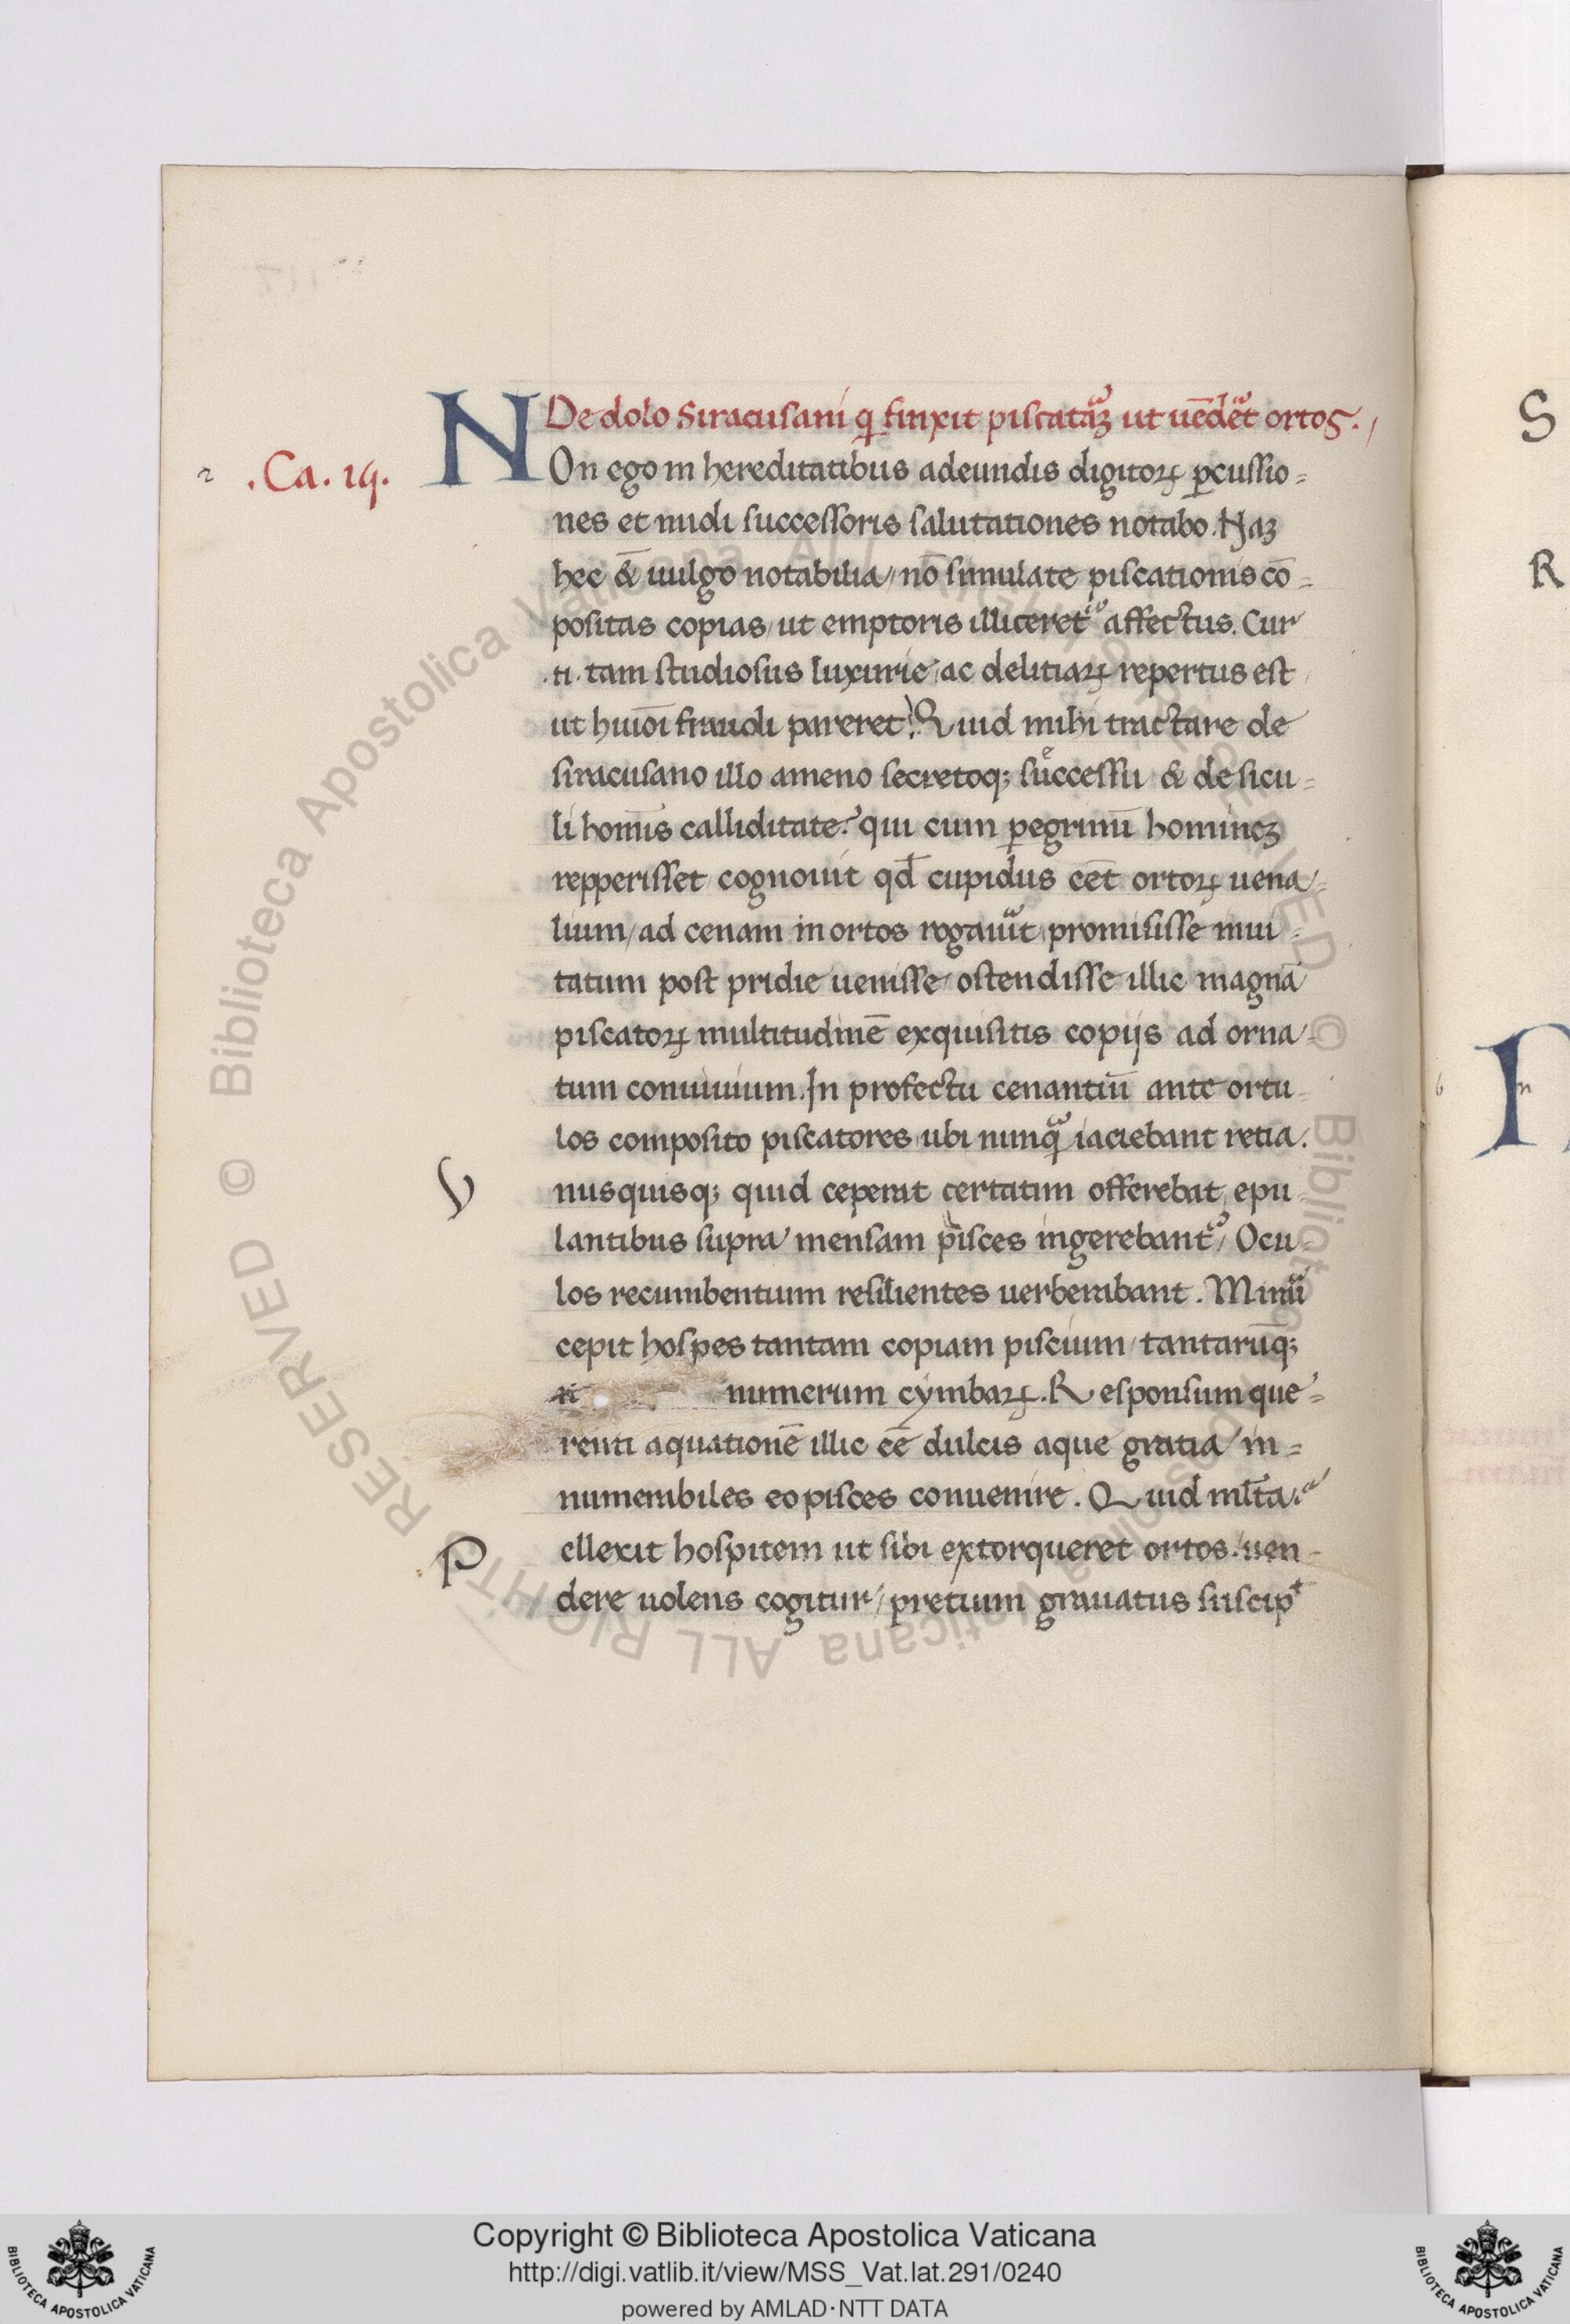 De dolo Siracusani q̄ finxit piscatᵃꝫ ut uēdēt ortos.
.Ca. 14.
NOn ego in hereditatibus adeundis digitoꝝ ꝑcussio-
nes et nudi successoris salutationes notabo. Naꝫ
hec & uulgo notabilia/ nō simulate piscationis cō-
positas copias/ ut emptoris illiceretᵘʳ affectus. Cur
.n. tam studiosus luxurie/ ac delitiaꝝ repertus est
ut huiōi fraudi pareret? Quid mihi tractare de
siracusano illo ameno secretoq; successu & de sicu-
li homīs calliditate? qui cum ꝑegrinū homineꝫ
repperisset cognouit qd̄ cupidus eēt ortoꝝ uena-
lium/ ad cenam in ortos rogauit promisisse inui-
tatum post pridie uenisse/ ostendisse illic magnā
piscatoꝝ multitudinē exquisitis copijs ad orna-
tum conuiuium. In profectu cenantiū ante ortu-
los composito piscatores ubi nunqᵃ iaciebant retia.
V nusquisq; quid ceperat certatim offerebat epu-
lantibus supra mensam pisces ingerebantᵘʳ/ Ocu-
los recumbentium resilientes uerberabant. Mirari
cepit hospes tantam copiam piscium/ tantarūq;
numerum cymbaꝝ. Responsum que-
renti aquationē illic eē dulcis aque gratia/ in-
numerabiles eo pisces conuenire. Quid mlta?
P ellexit hospitem ut sibi extorqueret ortos/ uen-
dere uolens cogitur/ pretium grauatus suscipᵗ
S
R
Copyright © Biblioteca Apostolica Vaticana
http://digi.vatlib.it/view/MSS_Vat.lat.291/0240
powered by AMLAD·NTT DATA
BIBLIOTECA APOSTOLICA VATICANA
BIBLIOTECA APOSTOLICA VATICANA